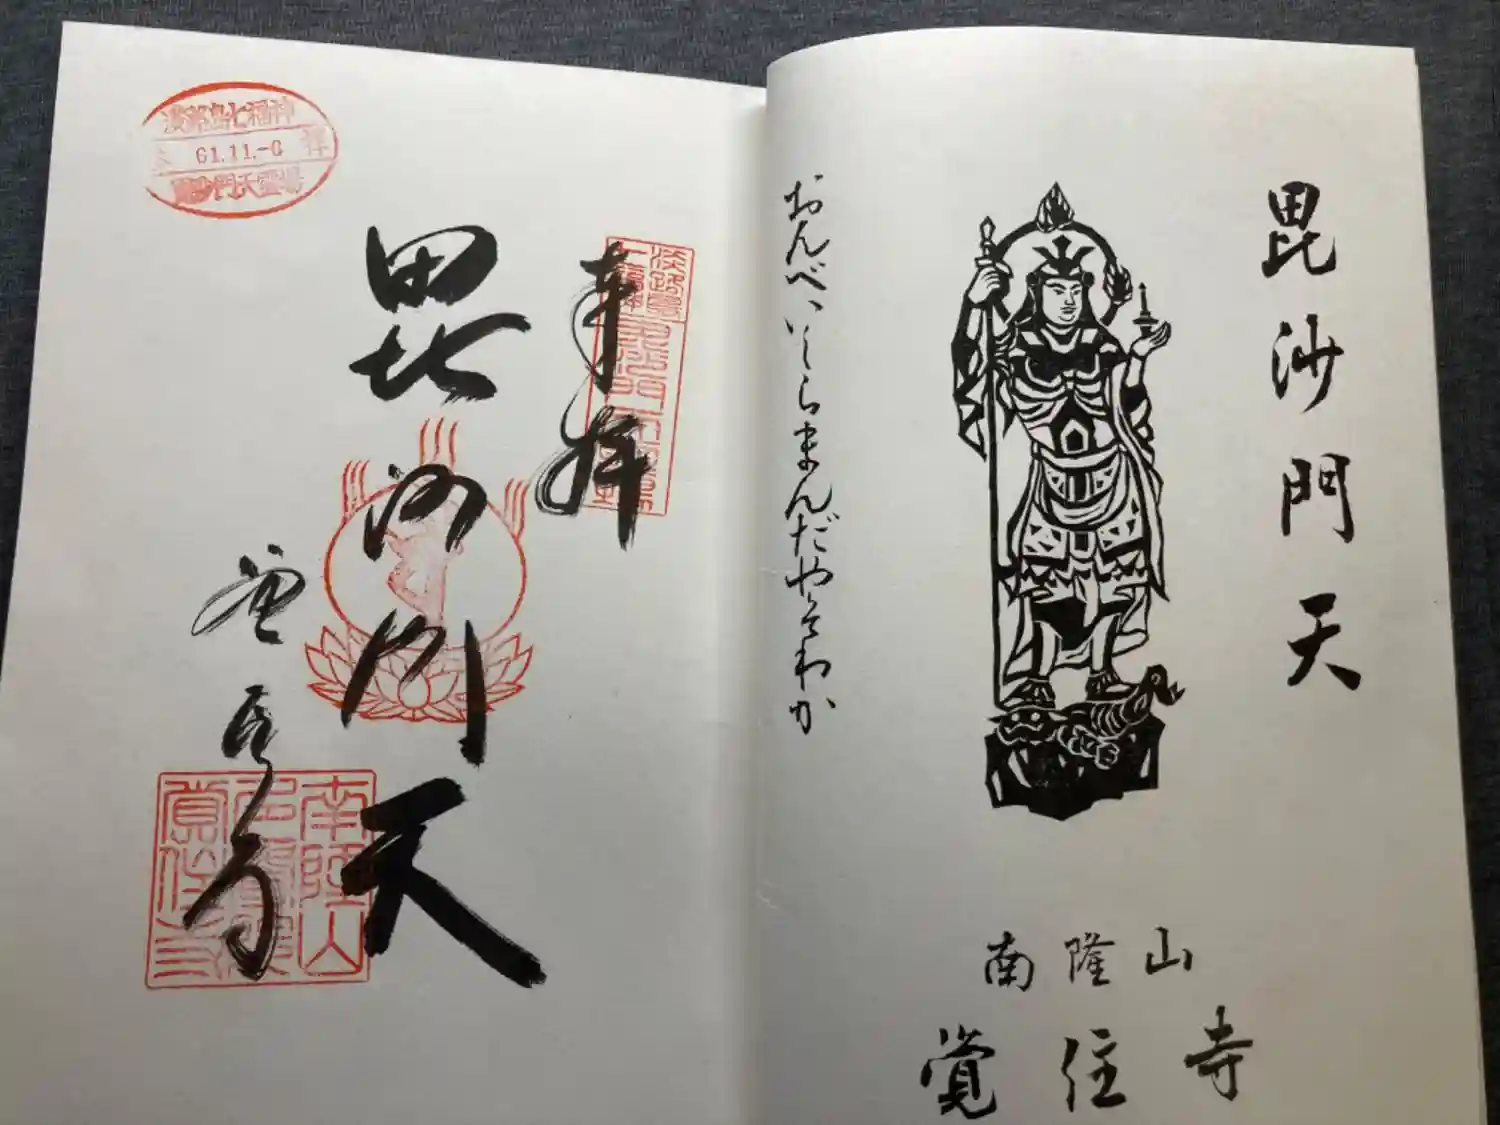 毘沙門天
おんべいしらまんだやそわか
南隆山
覚住寺
奉拝
毘沙門天
覚住寺
淡路島七福神
61.11.-6
毘沙門天霊場